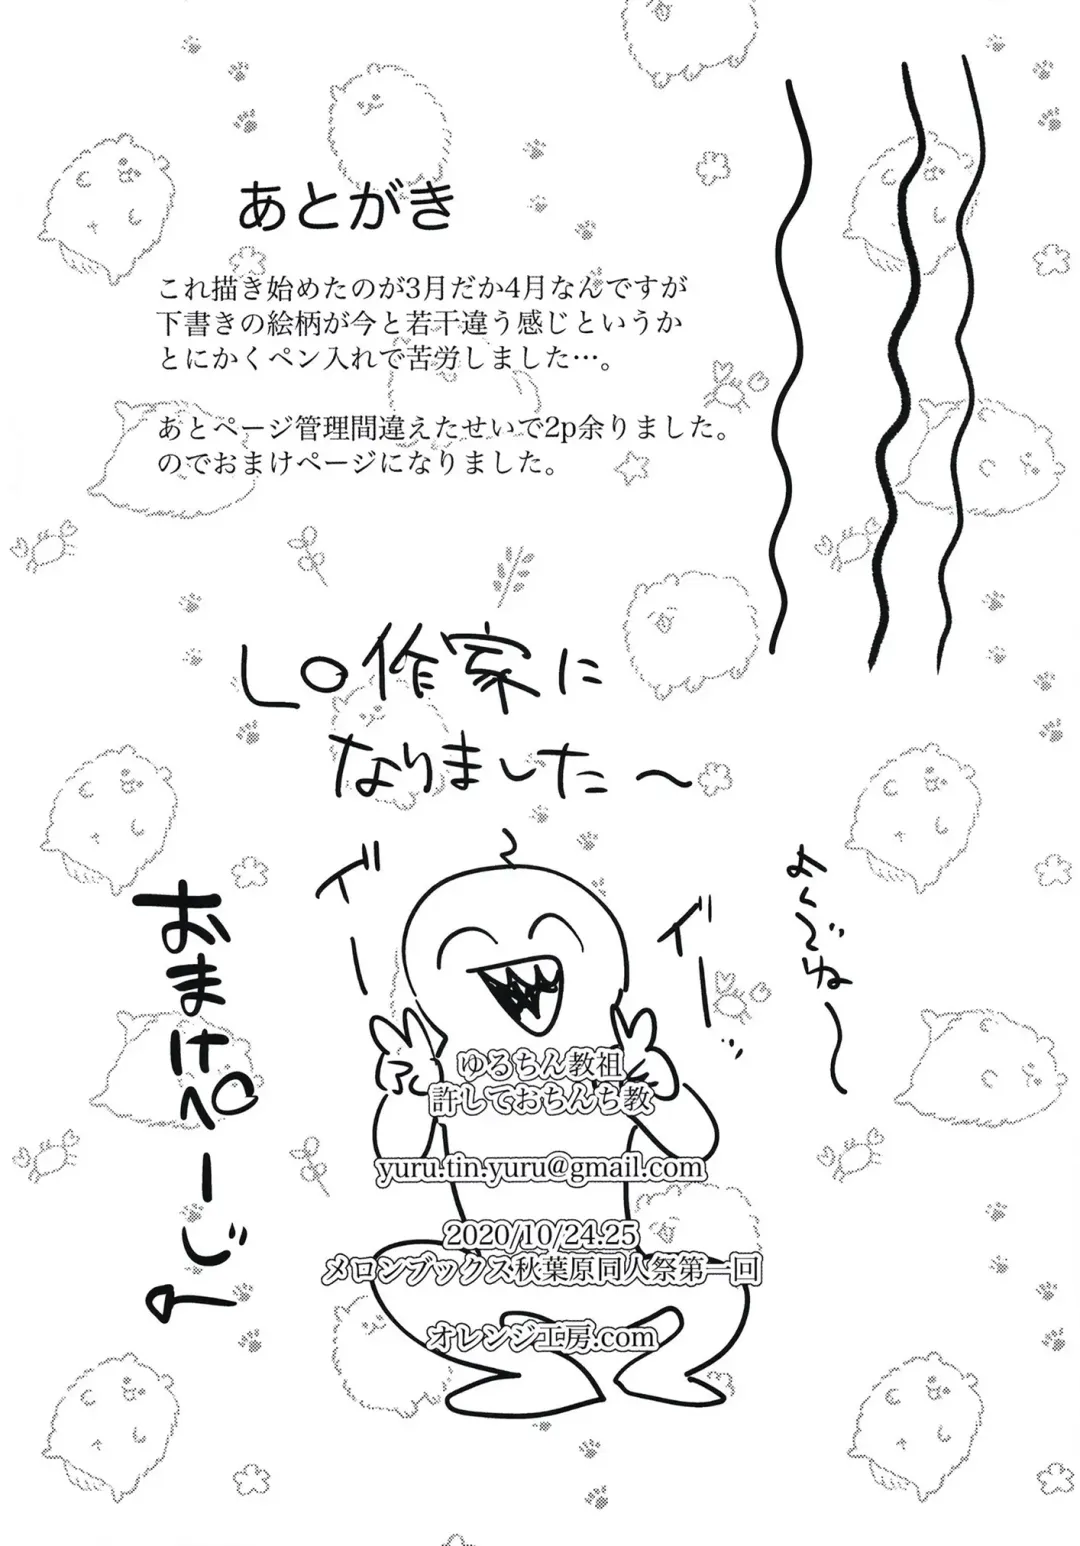 あとがき
これ描き始めたのが3月だか4月なんですが
下書きの絵柄が今と若干違う感じというか
とにかくペン入れで苦労しました…。
あとページ管理間違えたせいで2p余りました。
のでおまけページになりました。
LO作家に
なりました～
イ゛ー
イ゛ー…
よんでね～
おまけぺーじ
ゆるちん教祖
許しておちんち教
yuru.tin.yuru@gmail.com
2020/10/24.25
メロンブックス秋葉原同人祭第一回
オレンジ工房.com